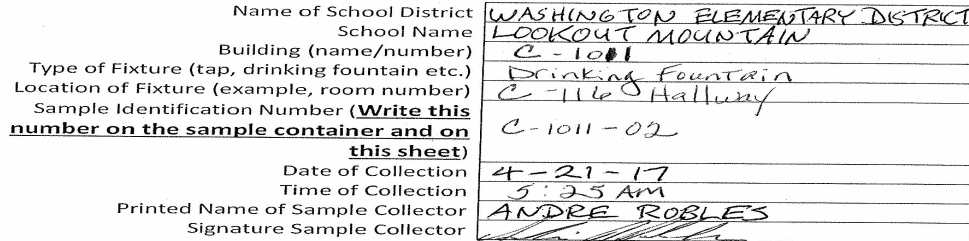 Name of School District WASHINGTON ELEMENTARY DISTRICT
School Name LOOKOUT MOUNTAIN
Building (name/number) C-1011
Type of Fixture (tap, drinking fountain etc.) Drinking Fountain
Location of Fixture (example, room number) C-116 Hallway
Sample Identification Number (Write this
number on the sample container and on C-1011-02
this sheet)
Date of Collection 4-21-17
Time of Collection 5:25 AM
Printed Name of Sample Collector ANDRE ROBLES
Signature Sample Collector